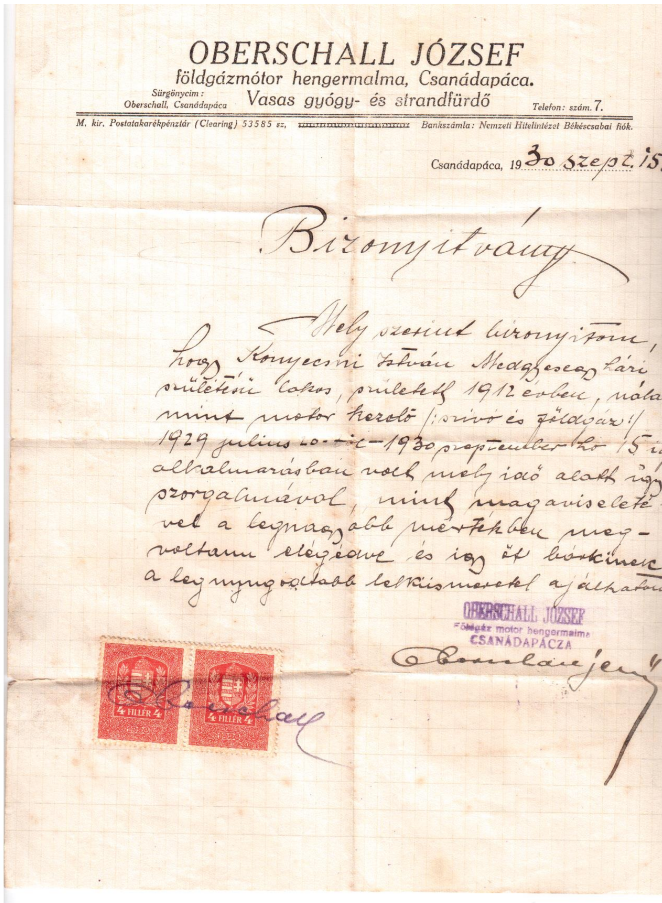 OBERSCHALL JÓZSEF
földgázmótor hengermalma, Csanádapáca.
Sürgönycim:
Oberschall, Csanádapáca
Vasas gyógy- és strandfürdő
Telefon: szám 7.
M. kir. Postatakarékpénztár (Clearing) 53585 sz,
Bankszámla: Nemzeti Hitelintézet Békéscsabai fiók.
Csanádapáca, 1930 szept. 15.
Bizonyitvány
Mely szerint bizonyitom,
hogy Konyecsni István Medgyesegyházi
születésü lakos, született 1912 évben, nála
mint motor kezelő /:szivó és földgáz:/
1929 július 20-tól 1930 szeptember hó 15 ig
alkalmazásban volt mely idő alatt úgy
szorgalmával, mint magaviseleté-
vel a legnagyobb mértékben meg-
voltam elégedve és igy őt bárkinek
a legnyugodtabb lelkiismerettel ajálhatom
OBERSCHALL JÓZSEF
Földgáz motor hengermalma
CSANÁDAPÁCZA
Oberschall Jenő
4 FILLÉR 4
4 FILLÉR 4
Oberschall